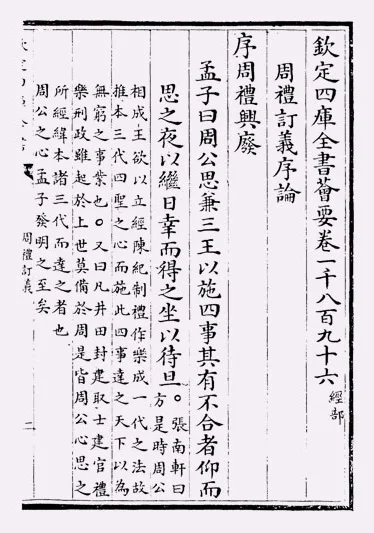 欽定四庫全書薈要卷一千八百九十六 經部
周禮訂義序論
序周禮興廢
孟子曰周公思兼三王以施四事其有不合者仰而
思之夜以繼日幸而得之坐以待旦。張南軒曰
方是時周公
相成王欲以立經陳紀制禮作樂成一代之法故
推本三代四聖之心而施此四事達之天下以為
無窮之事業也。又曰凡井田封建取士建官禮
樂刑政雖起於上世莫備於周是皆周公心思之
所經緯本諸三代而達之者也
周公之心孟子發明之至矣
周禮訂義
二